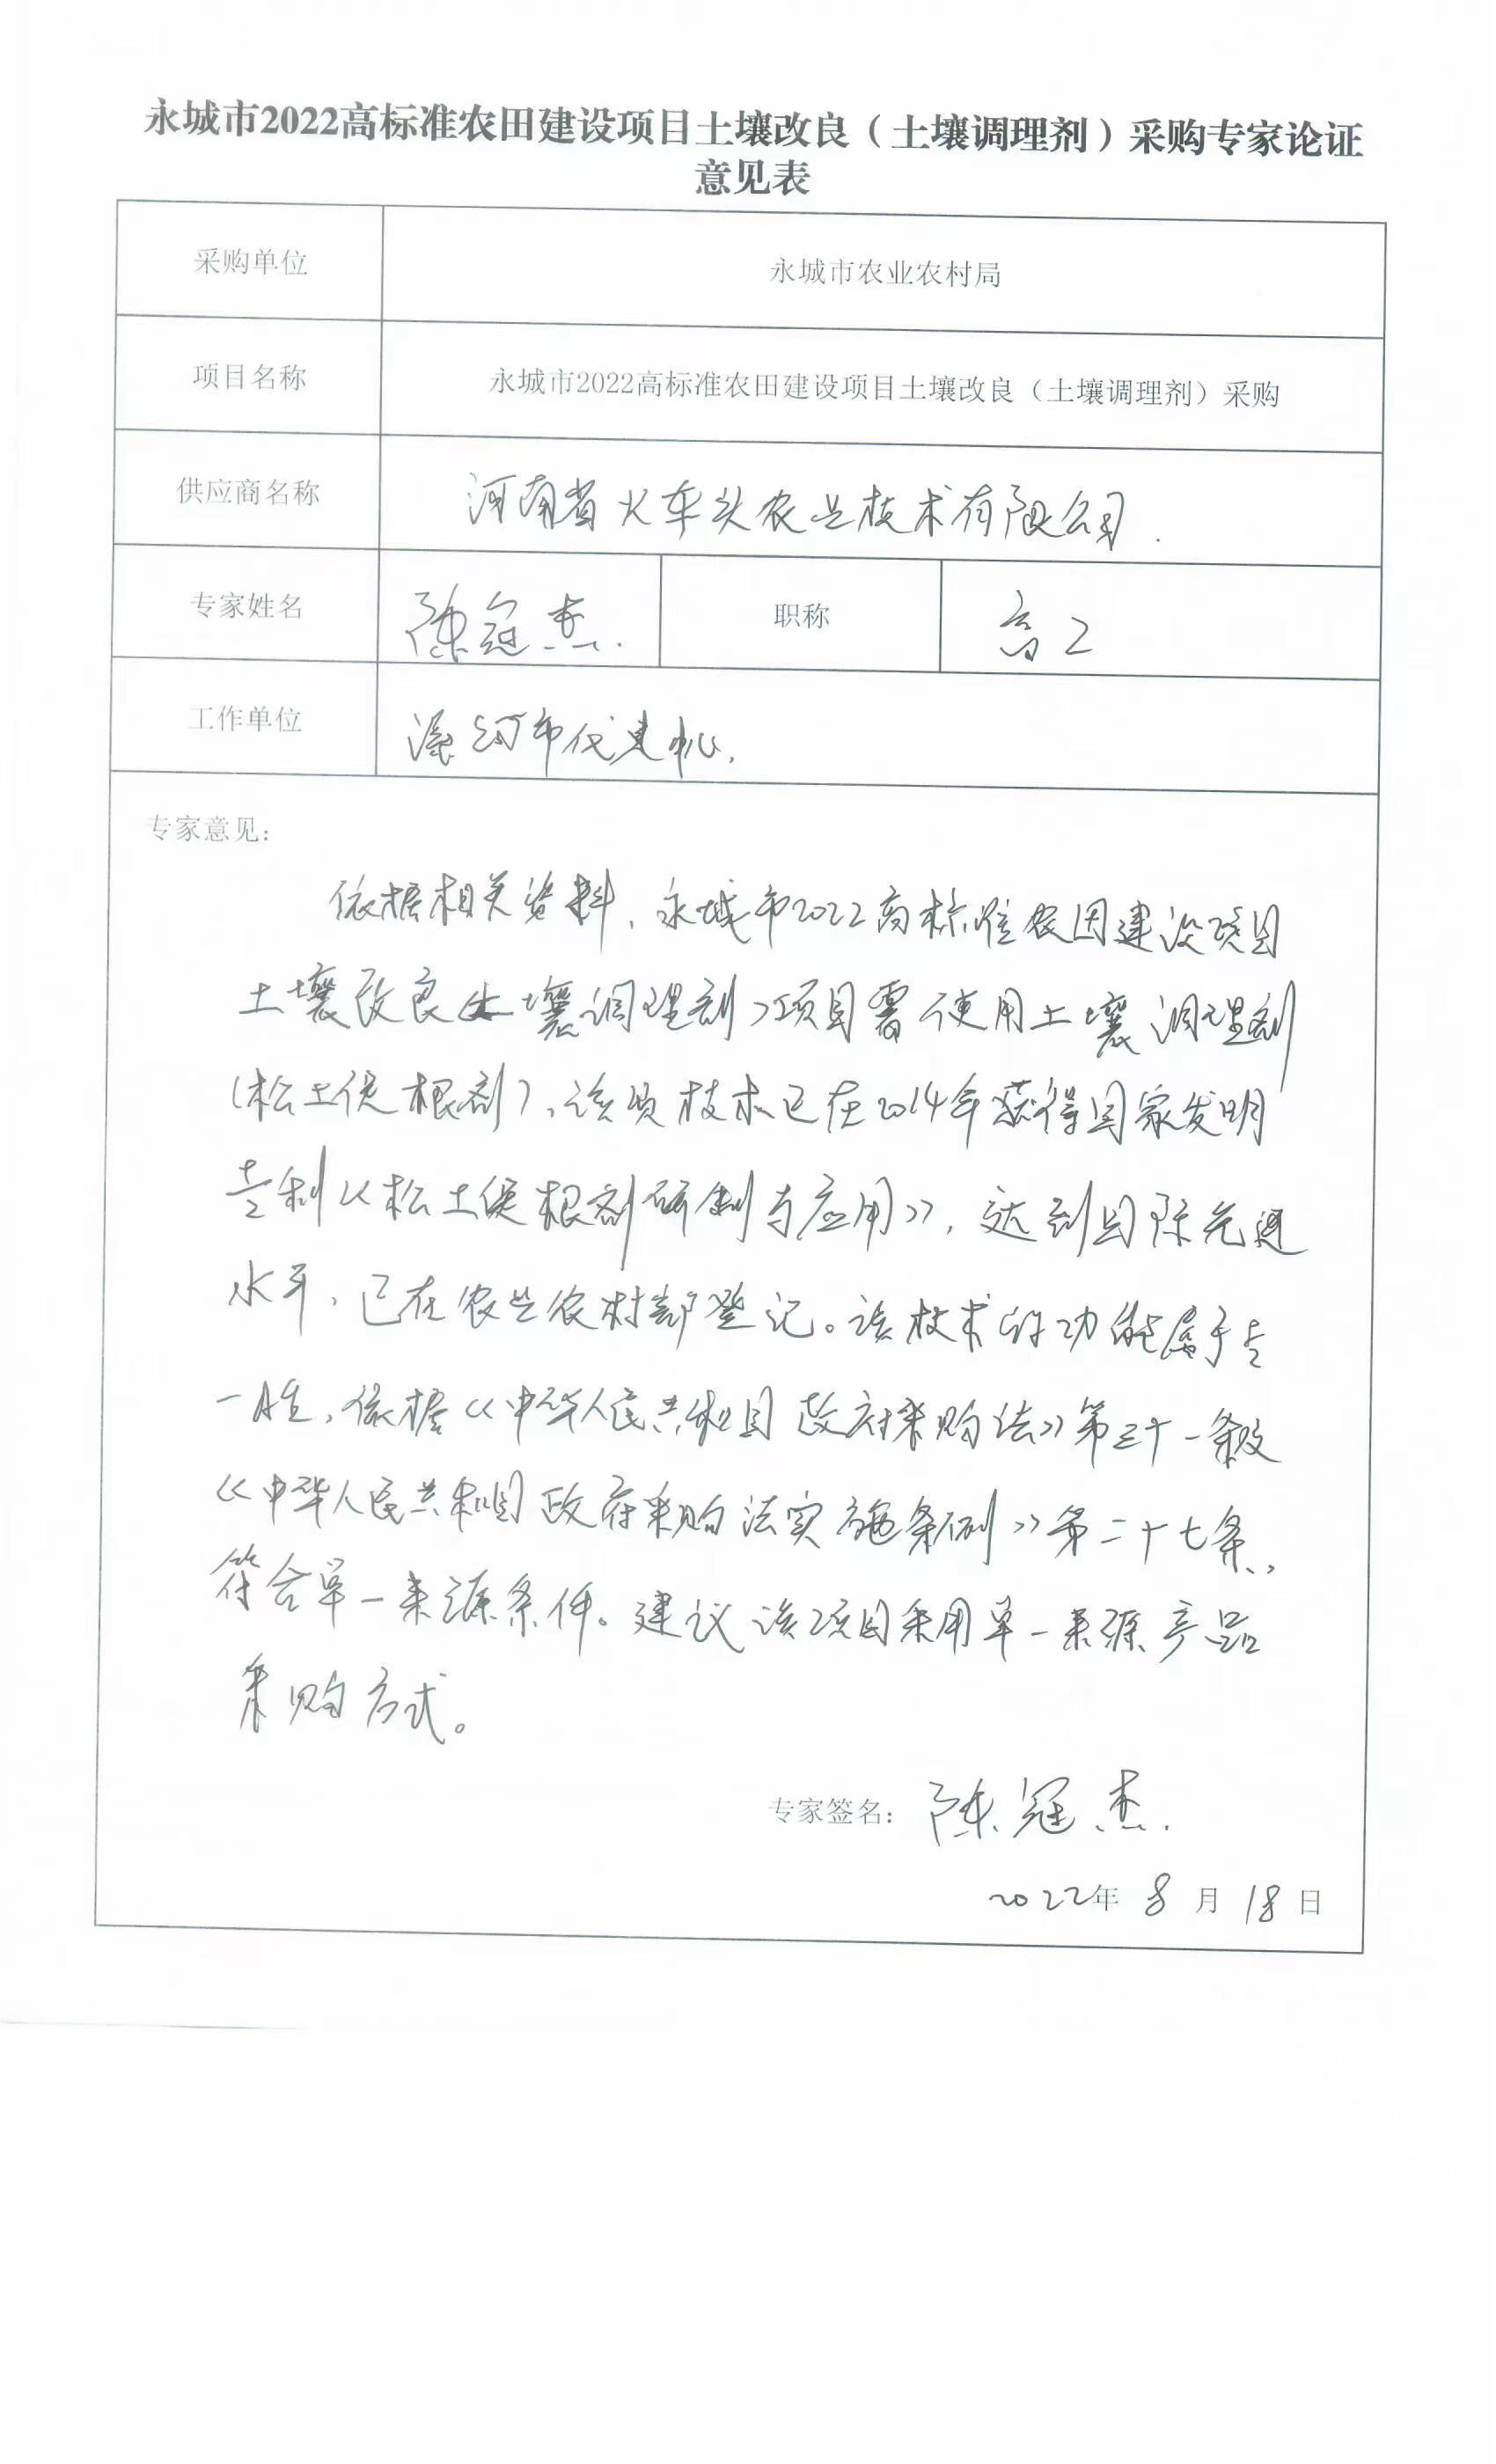 永城市2022高标准农田建设项目土壤改良（土壤调理剂）采购专家论证
意见表
采购单位
永城市农业农村局
项目名称
永城市2022高标准农田建设项目土壤改良（土壤调理剂）采购
供应商名称
河南省火车头农业技术有限公司.
专家姓名
陈冠杰.
职称
高工
工作单位
市代建中心.
专家意见:
依据相关资料，永城市2022高标准农田建设项目
土壤改良（土壤调理剂）项目需使用土壤调理剂
（松土促根剂），该项技术已在2014年获得国家发明
专利《松土促根剂研制与应用》，达到国际先进
水平，已在农业农村部登记。该技术的功能属于专
一性，依据《中华人民共和国政府采购法》第三十一条及
《中华人民共和国政府采购法实施条例》第二十七条，
符合单一来源条件。建议该项目采用单一来源产品
采购方式。
专家签名: 陈冠杰.
2022年 8 月 18 日